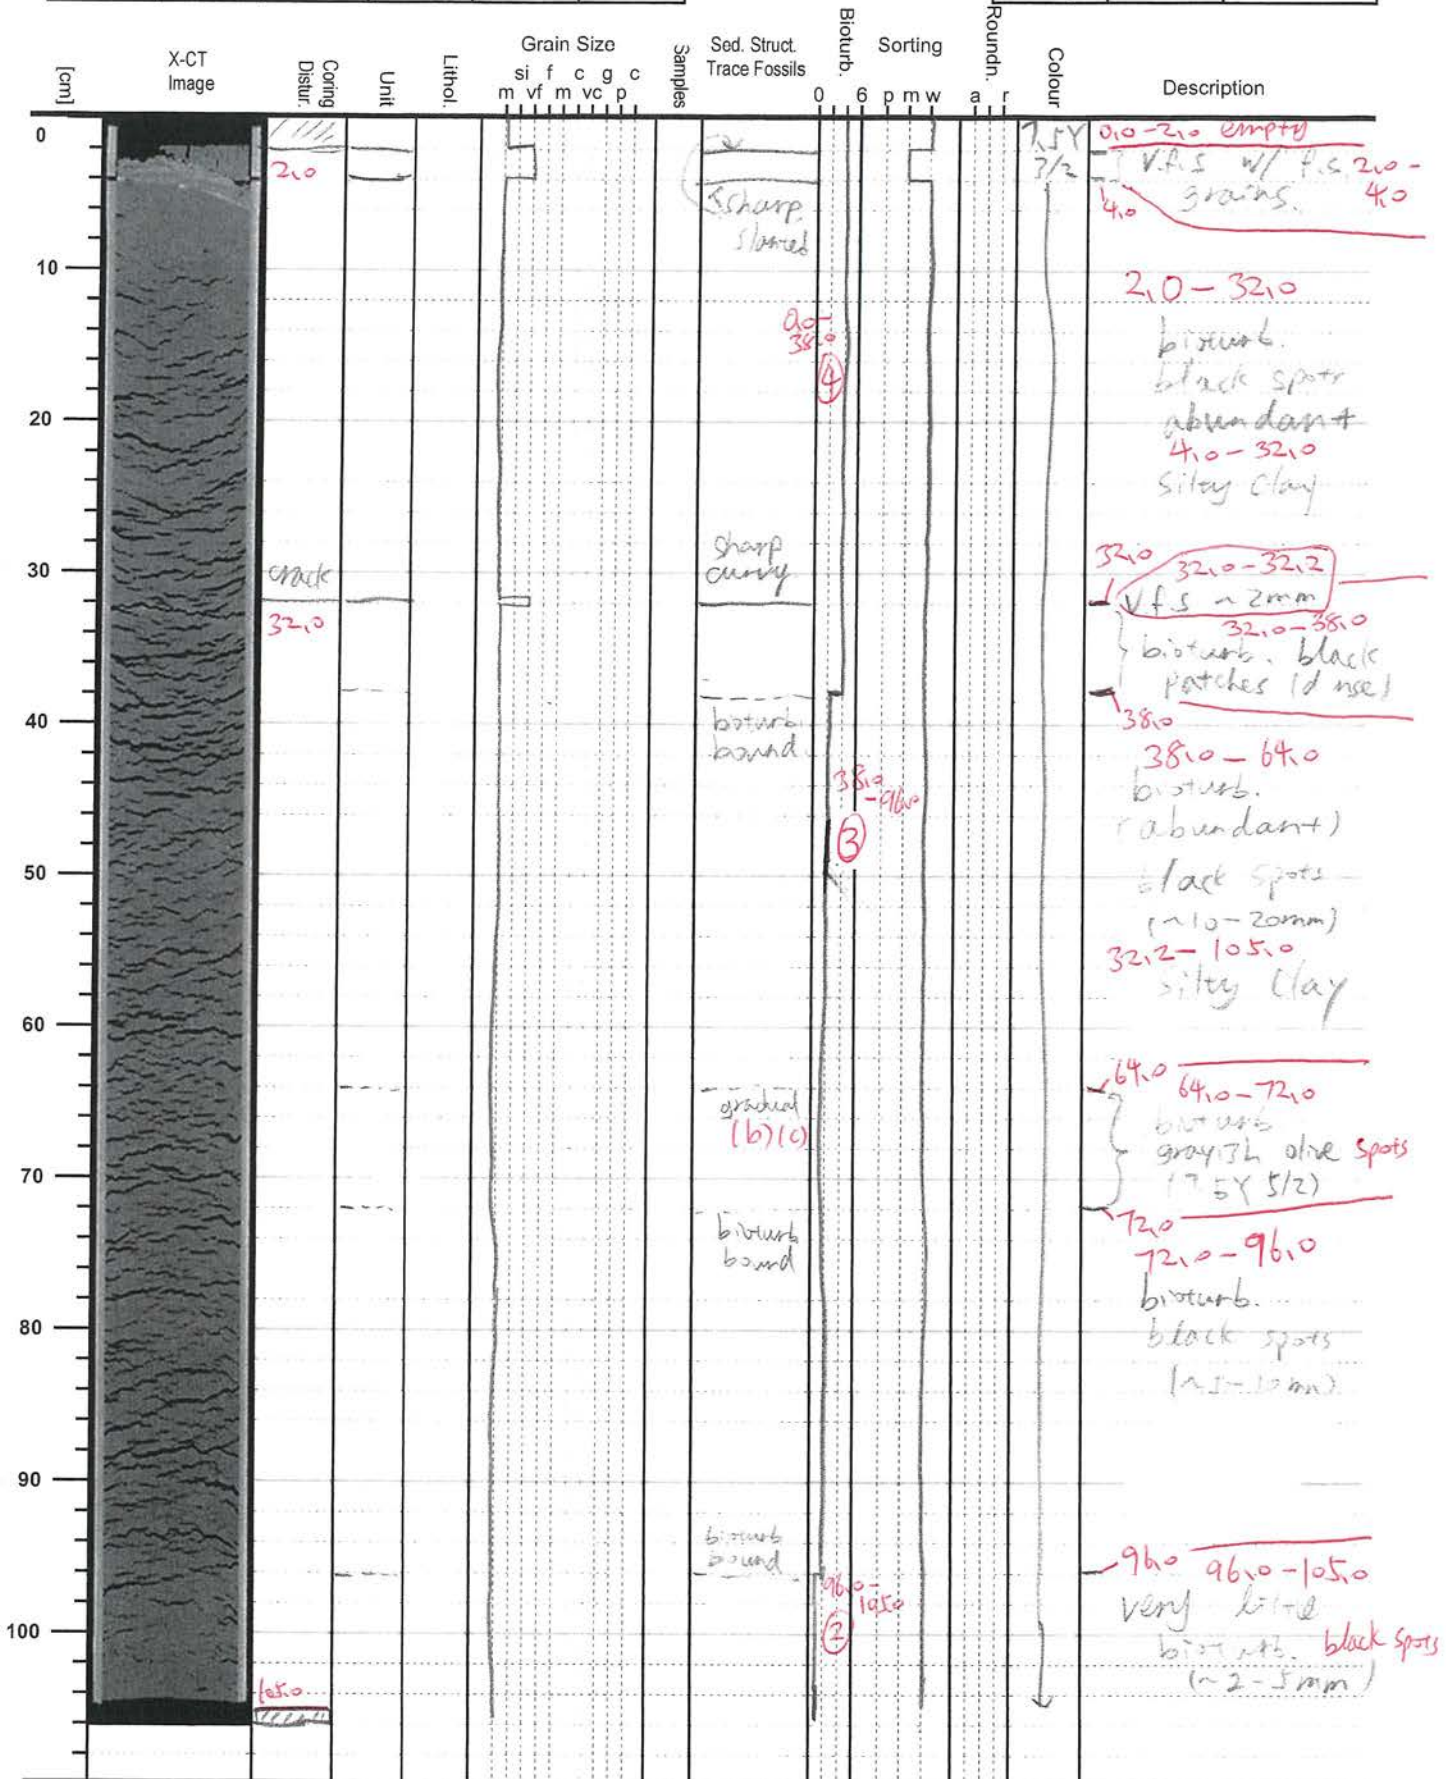 [cm]
X-CT
Image
Coring
Distur.
Unit
Lithol.
Grain Size
si f c g c
m vf m vc p
Samples
Sed. Struct.
Trace Fossils
Bioturb.
0 6
Sorting
p m w
Roundn.
a r
Colour
Description
0
10
20
30
40
50
60
70
80
90
100
2,0
crack
32,0
105,0
sharp
slanted
sharp
curvy
bioturb
bound
gradual
(b)(c)
bioturb
bound
bioturb
bound
0,0-
38,0
4
38,0
-96,0
3
96,0-
105,0
2
7.5Y
3/2
0,0-2,0 empty
v.f.s w/ f.s. 2,0-
grains. 4,0
4,0
2,0-32,0
bioturb.
black spots
abundant
4,0-32,0
Silty Clay
32,0
32,0-32,2
v.f.s ~2mm
32,0-38,0
bioturb. black
patches (d nse)
38,0
38,0-64,0
bioturb.
(abundant)
black spots
(~10-20mm)
32,2-105,0
Silty Clay
64,0
64,0-72,0
bioturb
grayish olive spots
(7.5Y 5/2)
72,0
72,0-96,0
bioturb.
black spots
96,0
96,0-105,0
very little
bioturb. black spots
(~2-5mm)